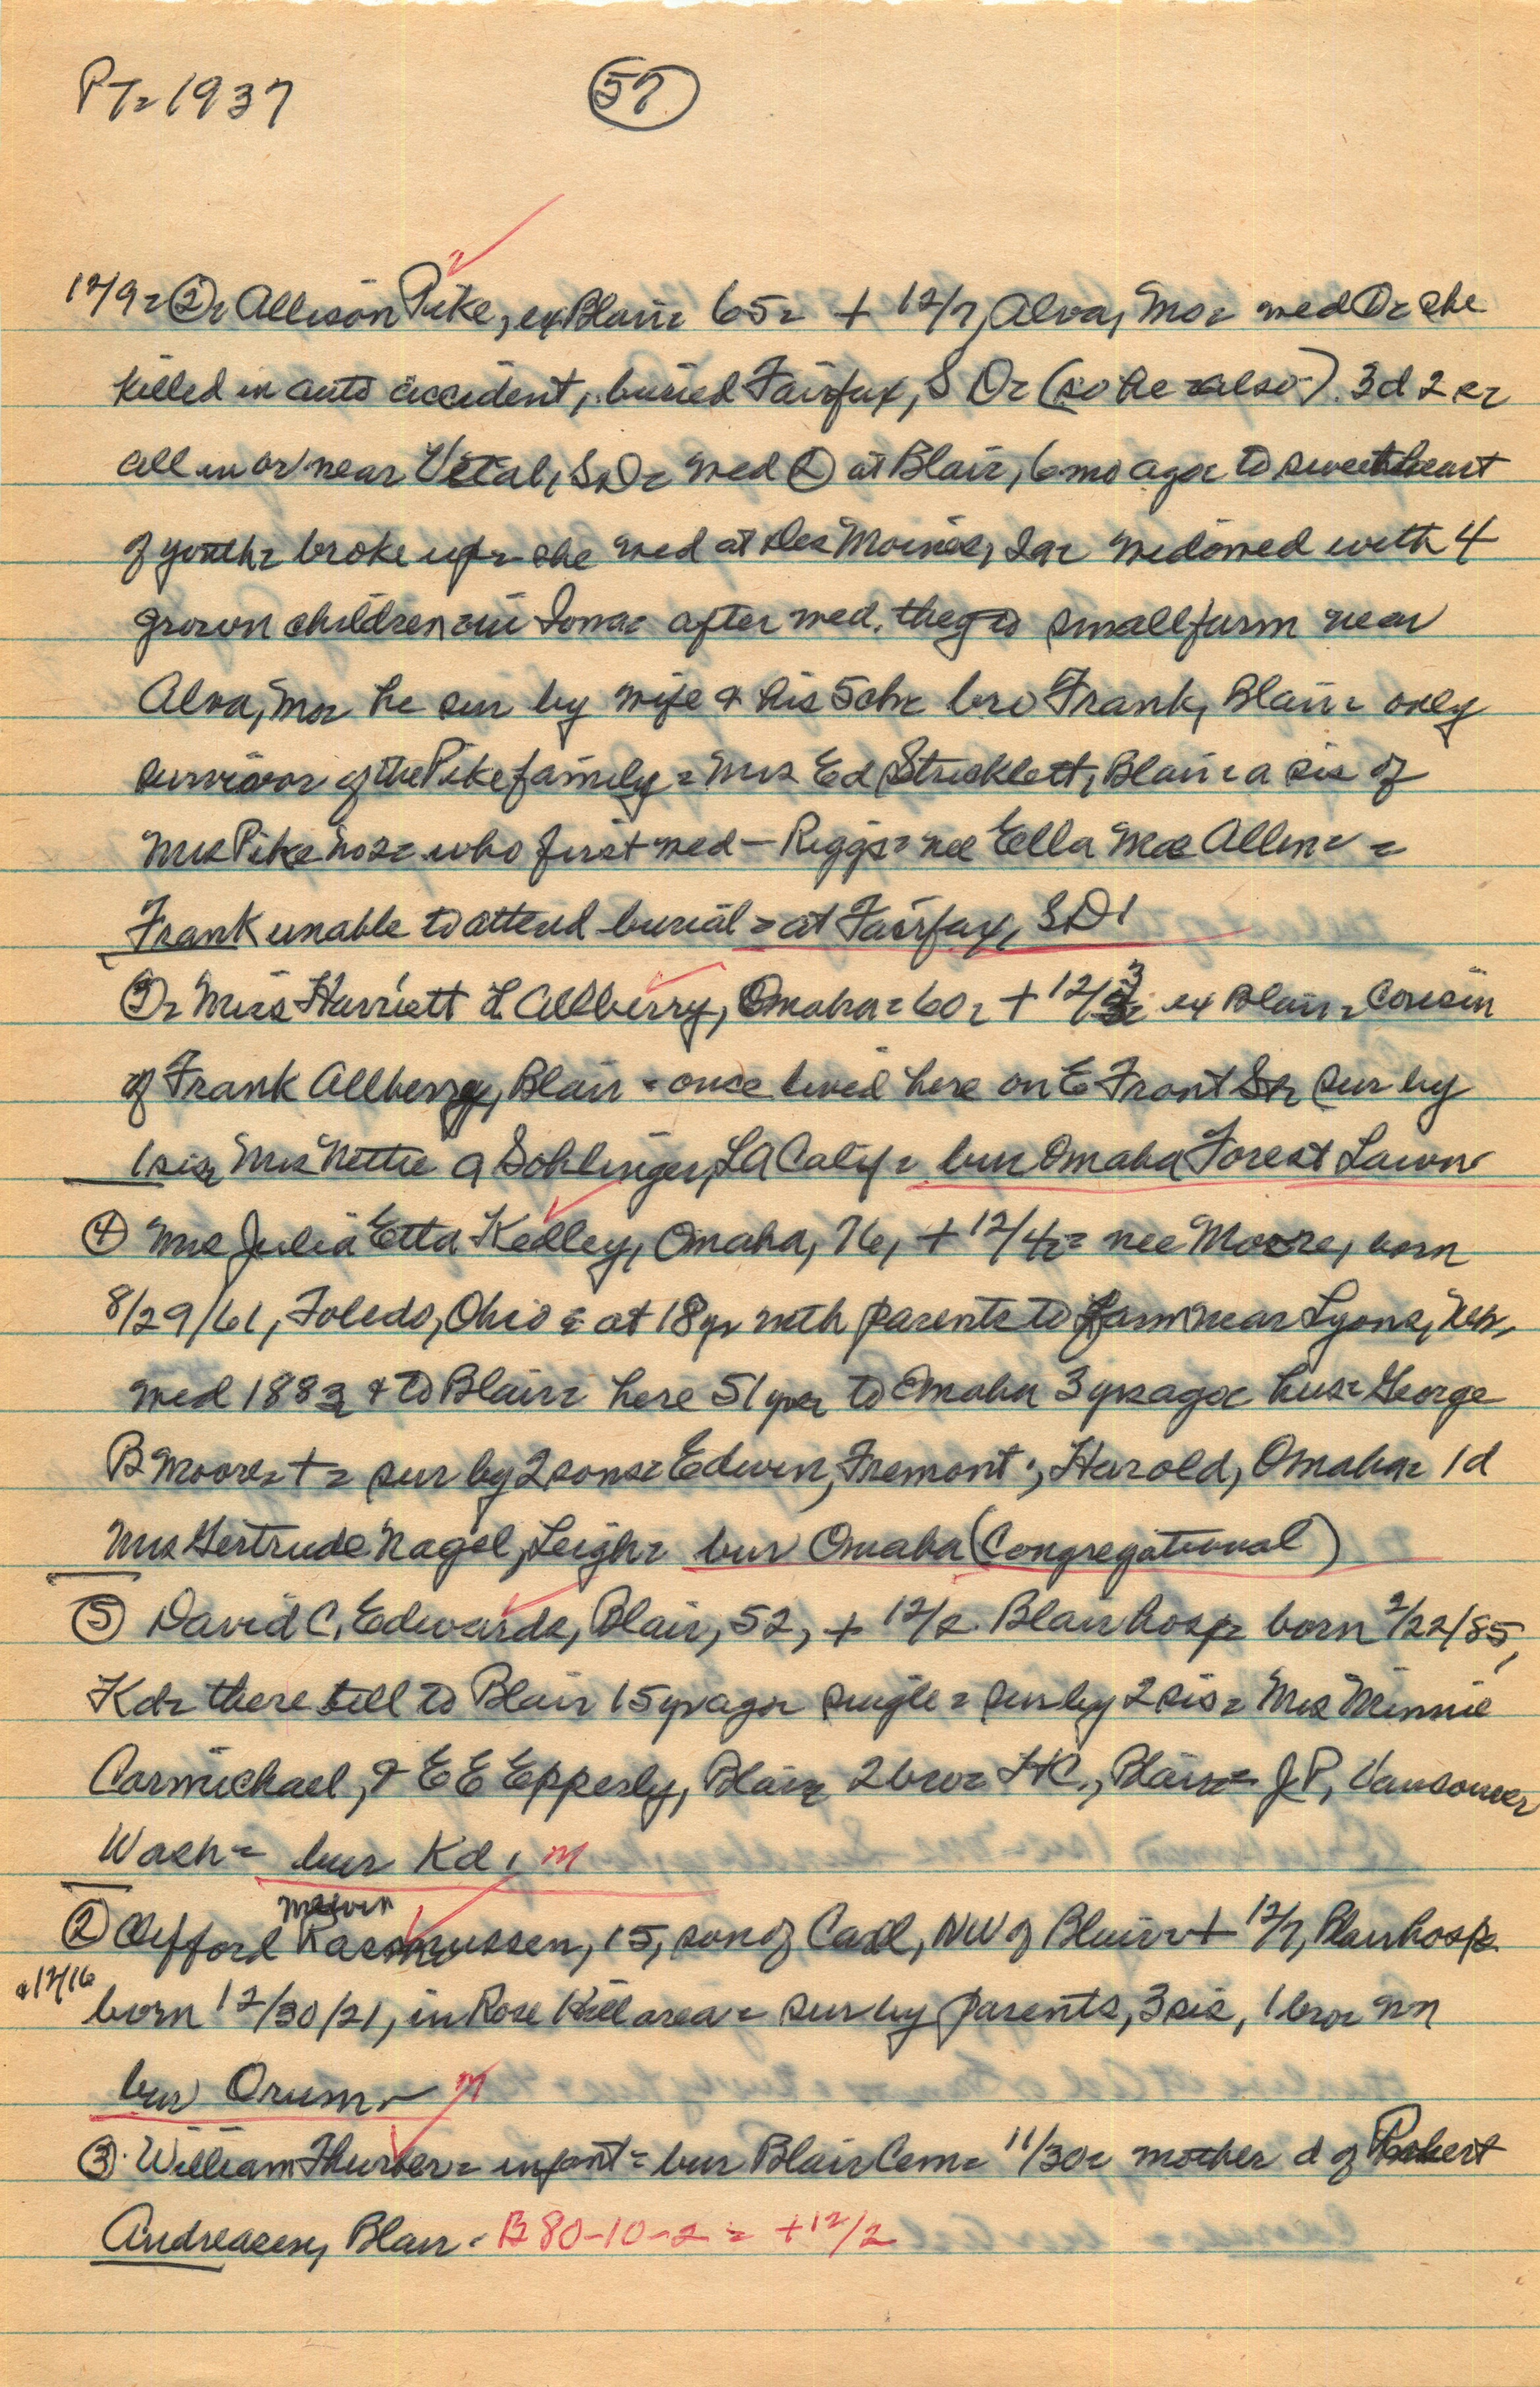 PT= 1937 (57)
12/9= ②= Allison Pike, ex Blair= 65= + 12/7, Alva, Mo= med ①= she
killed in auto accident, buried Fairfax, S D= (so he also). 3d 2 s=
all in or near Vetal, S D= med ② at Blair, 6 mo ago= to sweetheart
of youth= broke up= she med at Des Moines, Ia= widowed with 4
grown children= in Iowa= after med. they to small farm near
Alva, Mo= he sur by wife & his 5 ch= bro Frank, Blair= only
survivor of the Pike family= Mrs Ed Stricklett, Blair= a sis of
Mrs Pike No 2= who first med — Riggs= nee Ella Mae Allen= =
Frank unable to attend burial= at Fairfax, SD.
③= Miss Harriett L Allberry, Omaha= 60= + 12/3= ex Blair= cousin
of Frank Allberry, Blair= once lived here on E Front St= sur by
1 sis= Mrs Nettie A Sohlinger, LA Calif= bur Omaha Forest Lawn
④ Mrs Julia Etta Kelley, Omaha, 76, + 12/4= = nee Moore, born
8/29/61, Toledo, Ohio= at 18 yr with parents to farm near Lyons, Neb,
med 1883 & to Blair= here 51 yrs= to Omaha 3 yrs ago= hus= George
B Moore= + = sur by 2 sons= Edwin, Fremont; Harold, Omaha= 1 d
Mrs Gertrude Nagel, Leigh= bur Omaha (Congregational)
⑤ David C. Edwards, Blair, 52, + 12/2. Blair hosp= born 2/22/85,
Kd= there till to Blair 15 yr ago= single= sur by 2 sis= Mrs Minnie
Carmichael, & E E Epperly, Blair= 2 bro= H C, Blair= J P, Vancouver
Wash= bur Kd. m
Melvin
② Clifford Rasmussen, 15, son of Carl, NW of Blair= + 12/7, Blair hosp
& 12/16
born 12/30/21, in Rose Hill area= sur by parents, 3 sis, 1 bro= nn
bur Orum= m
③ William Thurber= infant= bur Blair Cem= 11/30= mother d of Robert
Andreasen, Blair= B 80-10-2= + 12/2